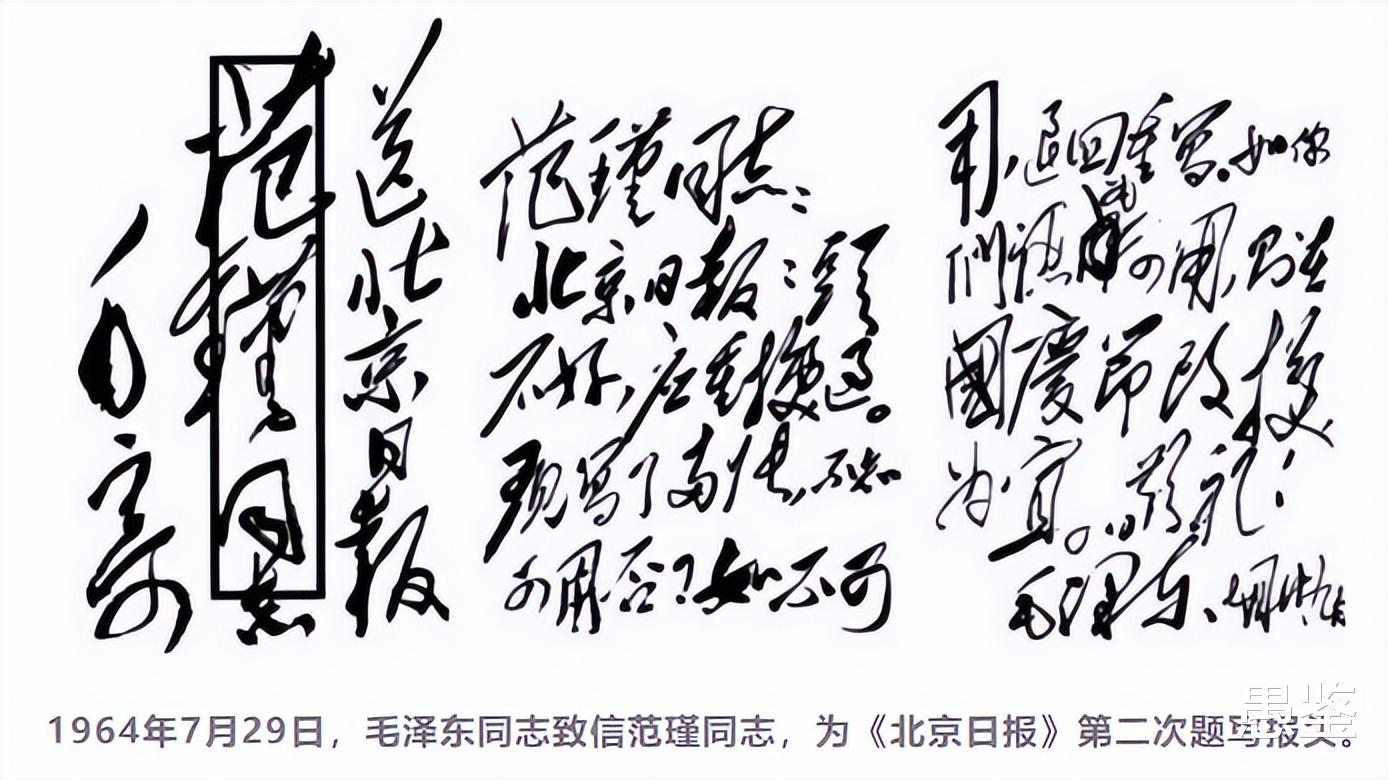 送北京日报
范瑾同志
范瑾同志:
北京日报:头
不好,应重换过。
现写了两张,不知
可用否?如不可
用,退回重写。如你
們認可用,则在
國慶節改换
为宜。敬礼!
毛泽东 七月廿九日
1964年7月29日，毛泽东同志致信范瑾同志，为《北京日报》第二次题写报头。
愚鉴